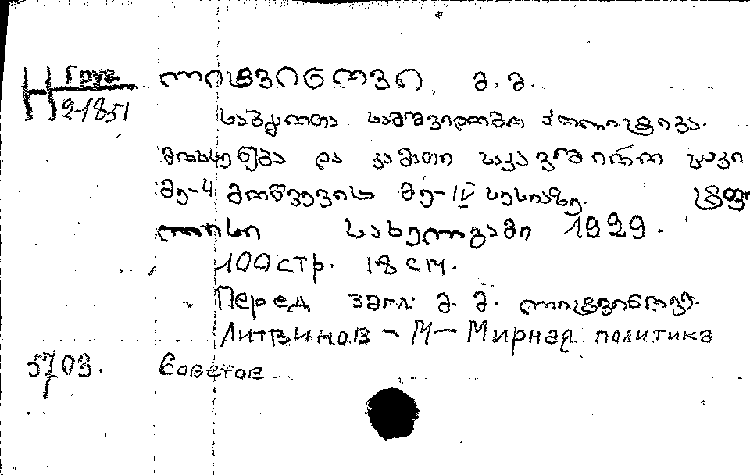 Н Груз. ლიტვინოვი, მ. მ.
2-1851
საბჭოთა სამშვიდობო პოლიტიკა.
მოხსენება და კამათი საკავშირო ცაკი
მე-4 მოწვევის მე-IV სესიაზე. ტფი
ლისი სახელგამი 1929.
100 стр. 18 см.
Перед загл: მ. მ. ლიტვინოვი.
Литвинов - М - Мирная политика
5709. Советов